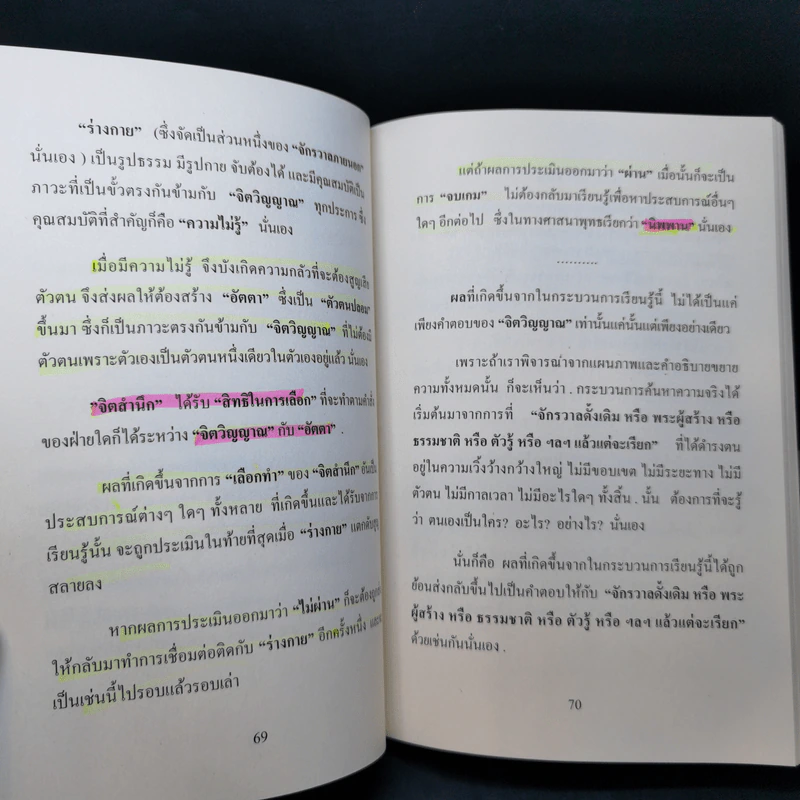 “ร่างกาย” (ซึ่งจัดเป็นส่วนหนึ่งของ “จักรวาลภายนอก”
นั่นเอง ) เป็นรูปธรรม มีรูปกาย จับต้องได้ และมีคุณสมบัติเป็น
ภาวะที่เป็นขั้วตรงกันข้ามกับ “จิตวิญญาณ” ทุกประการ ซึ่ง
คุณสมบัติที่สำคัญก็คือ “ความไม่รู้” นั่นเอง
เมื่อมีความไม่รู้ จึงบังเกิดความกลัวที่จะต้องสูญเสีย
ตัวตน จึงส่งผลให้ต้องสร้าง “อัตตา” ซึ่งเป็น “ตัวตนปลอม”
ขึ้นมา ซึ่งก็เป็นภาวะตรงกันข้ามกับ “จิตวิญญาณ” ที่ไม่ต้องมี
ตัวตนเพราะตัวเองเป็นตัวตนหนึ่งเดียวในตัวเองอยู่แล้ว นั่นเอง
”จิตสำนึก” ได้รับ “สิทธิในการเลือก” ที่จะทำตามคำสั่ง
ของฝ่ายใดก็ได้ระหว่าง “จิตวิญญาณ” กับ “อัตตา” .
ผลที่เกิดขึ้นจากการ “เลือกทำ” ของ “จิตสำนึก” อันเป็น
ประสบการณ์ต่างๆ ใดๆ ทั้งหลาย ที่เกิดขึ้นและได้รับจากการ
เรียนรู้นั้น จะถูกประเมินในท้ายที่สุดเมื่อ “ร่างกาย” แตกดับสูญ
สลายลง
หากผลการประเมินออกมาว่า “ไม่ผ่าน” ก็จะต้องถูก
ให้กลับมาทำการเชื่อมต่อติดกับ “ร่างกาย” อีกครั้งหนึ่ง และ
เป็นเช่นนี้ไปรอบแล้วรอบเล่า
69
แต่ถ้าผลการประเมินออกมาว่า “ผ่าน” เมื่อนั้นก็จะเป็น
การ “จบเกม” ไม่ต้องกลับมาเรียนรู้เพื่อหาประสบการณ์อื่นๆ
ใดๆ อีกต่อไป ซึ่งในทางศาสนาพุทธเรียกว่า “นิพพาน” นั่นเอง
..........
ผลที่เกิดขึ้นจากในกระบวนการเรียนรู้นี้ ไม่ได้เป็นแค่
เพียงคำตอบของ “จิตวิญญาณ” เท่านั้นแค่นั้นแต่เพียงอย่างเดียว
เพราะถ้าเราพิจารณ่าจากแผนภาพและคำอธิบายขยาย
ความทั้งหมดนั้น ก็จะเห็นว่า . กระบวนการค้นหาความจริงได้
เริ่มต้นมาจากการที่ “จักรวาลดั้งเดิม หรือ พระผู้สร้าง หรือ
ธรรมชาติ หรือ ตัวรู้ หรือ ฯลฯ แล้วแต่จะเรียก” ที่ได้ดำรงตน
อยู่ในความเวิ้งว้างกว้างใหญ่ ไม่มีขอบเขต ไม่มีระยะทาง ไม่มี
ตัวตน ไม่มีกาลเวลา ไม่มีอะไรใดๆ ทั้งสิ้น . นั้น ต้องการที่จะรู้
ว่า ตนเองเป็นใคร? อะไร? อย่างไร? นั่นเอง
นั่นก็คือ ผลที่เกิดขึ้นจากในกระบวนการเรียนรู้นี้ได้ถูก
ย้อนส่งกลับขึ้นไปเป็นคำตอบให้กับ “จักรวาลดั้งเดิม หรือ พระ
ผู้สร้าง หรือ ธรรมชาติ หรือ ตัวรู้ หรือ ฯลฯ แล้วแต่จะเรียก”
ด้วยเช่นกันนั่นเอง .
70